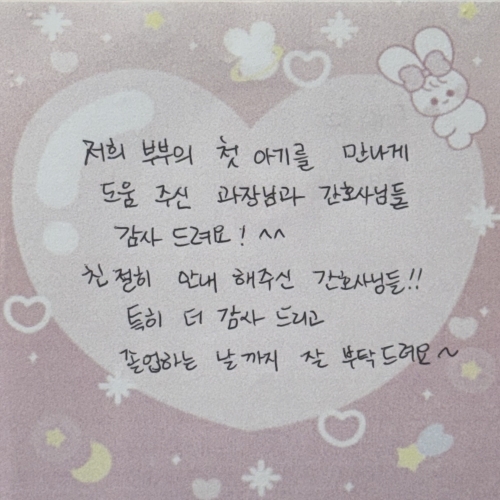 저희 부부의 첫 아기를 만나게
도움 주신 과장님과 간호사님들
감사 드려요! ^^
친절히 안내 해주신 간호사님들!!
특히 더 감사 드리고
졸업하는 날까지 잘 부탁드려요~